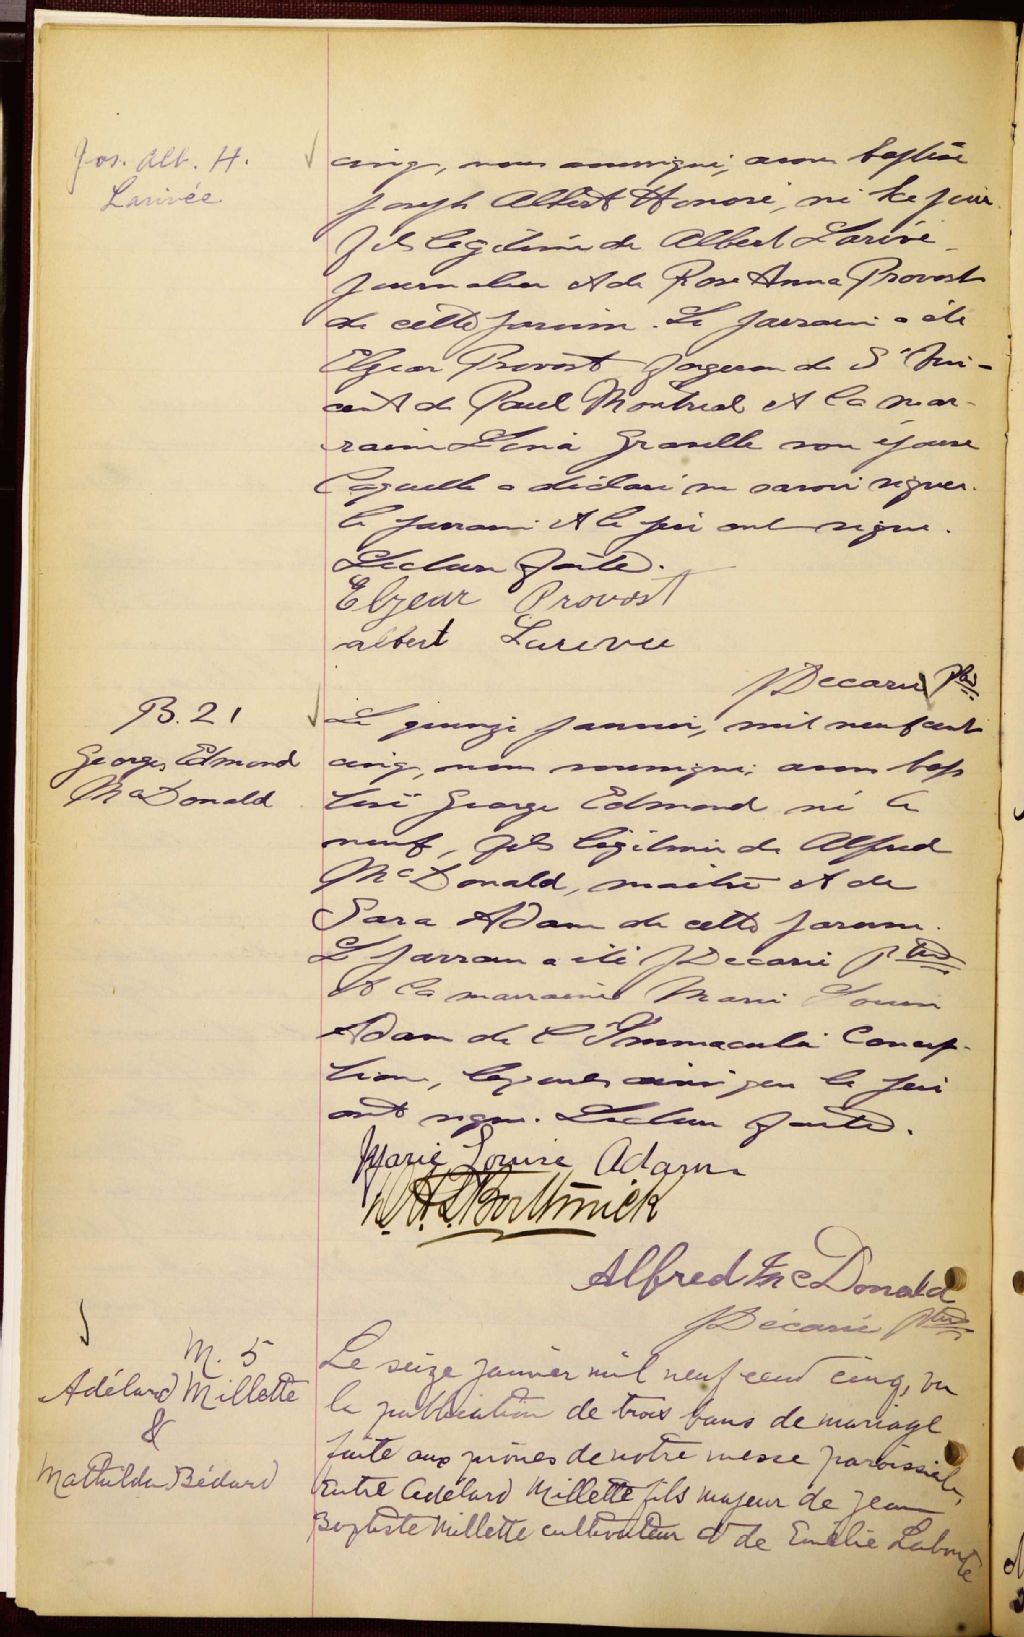 Jos. Alb. H.
Larivée
cinq, nous soussigné, avons baptisé
Joseph Albert Honoré, né ce jour
fils légitime de Albert Larivé
journalier et de Rose Anna Provost
de cette paroisse. Le parrain a été
Elzear Provost forgeron de St Vin-
cent de Paul Montreal et la mar-
raine son épouse
laquelle a déclaré ne savoir signer.
le parrain et le père ont signé.
Lecture faite.
Elzear Provost
albert Larivée
JDecarie Ptre
B. 21
Georges Edmond
McDonald
Le quinze janvier, mil neuf cent
cinq, nous soussigné, avons bap
tisé George Edmond né le
neuf, fils légitime de Alfred
McDonald, et de
Sara Adam de cette paroisse.
Le parrain a été JDecarie Ptre
et la marraine Marie Louise
Adam de l'Immaculée Concep-
tion, lesquels ainsi que le père
ont signé. Lecture faite.
Marie Louise Adam
Alfred McDonald
JDécarie ptre
M. 5
Adélard Millette
&
Mathilda Bédard
Le seize janvier mil neuf cent cinq, vu
la publication de trois bans de mariage
faite aux prônes de notre messe paroissiale,
entre Adélard Millette fils majeur de Jean
Baptiste Millette cultivateur et de Emélie Labonté